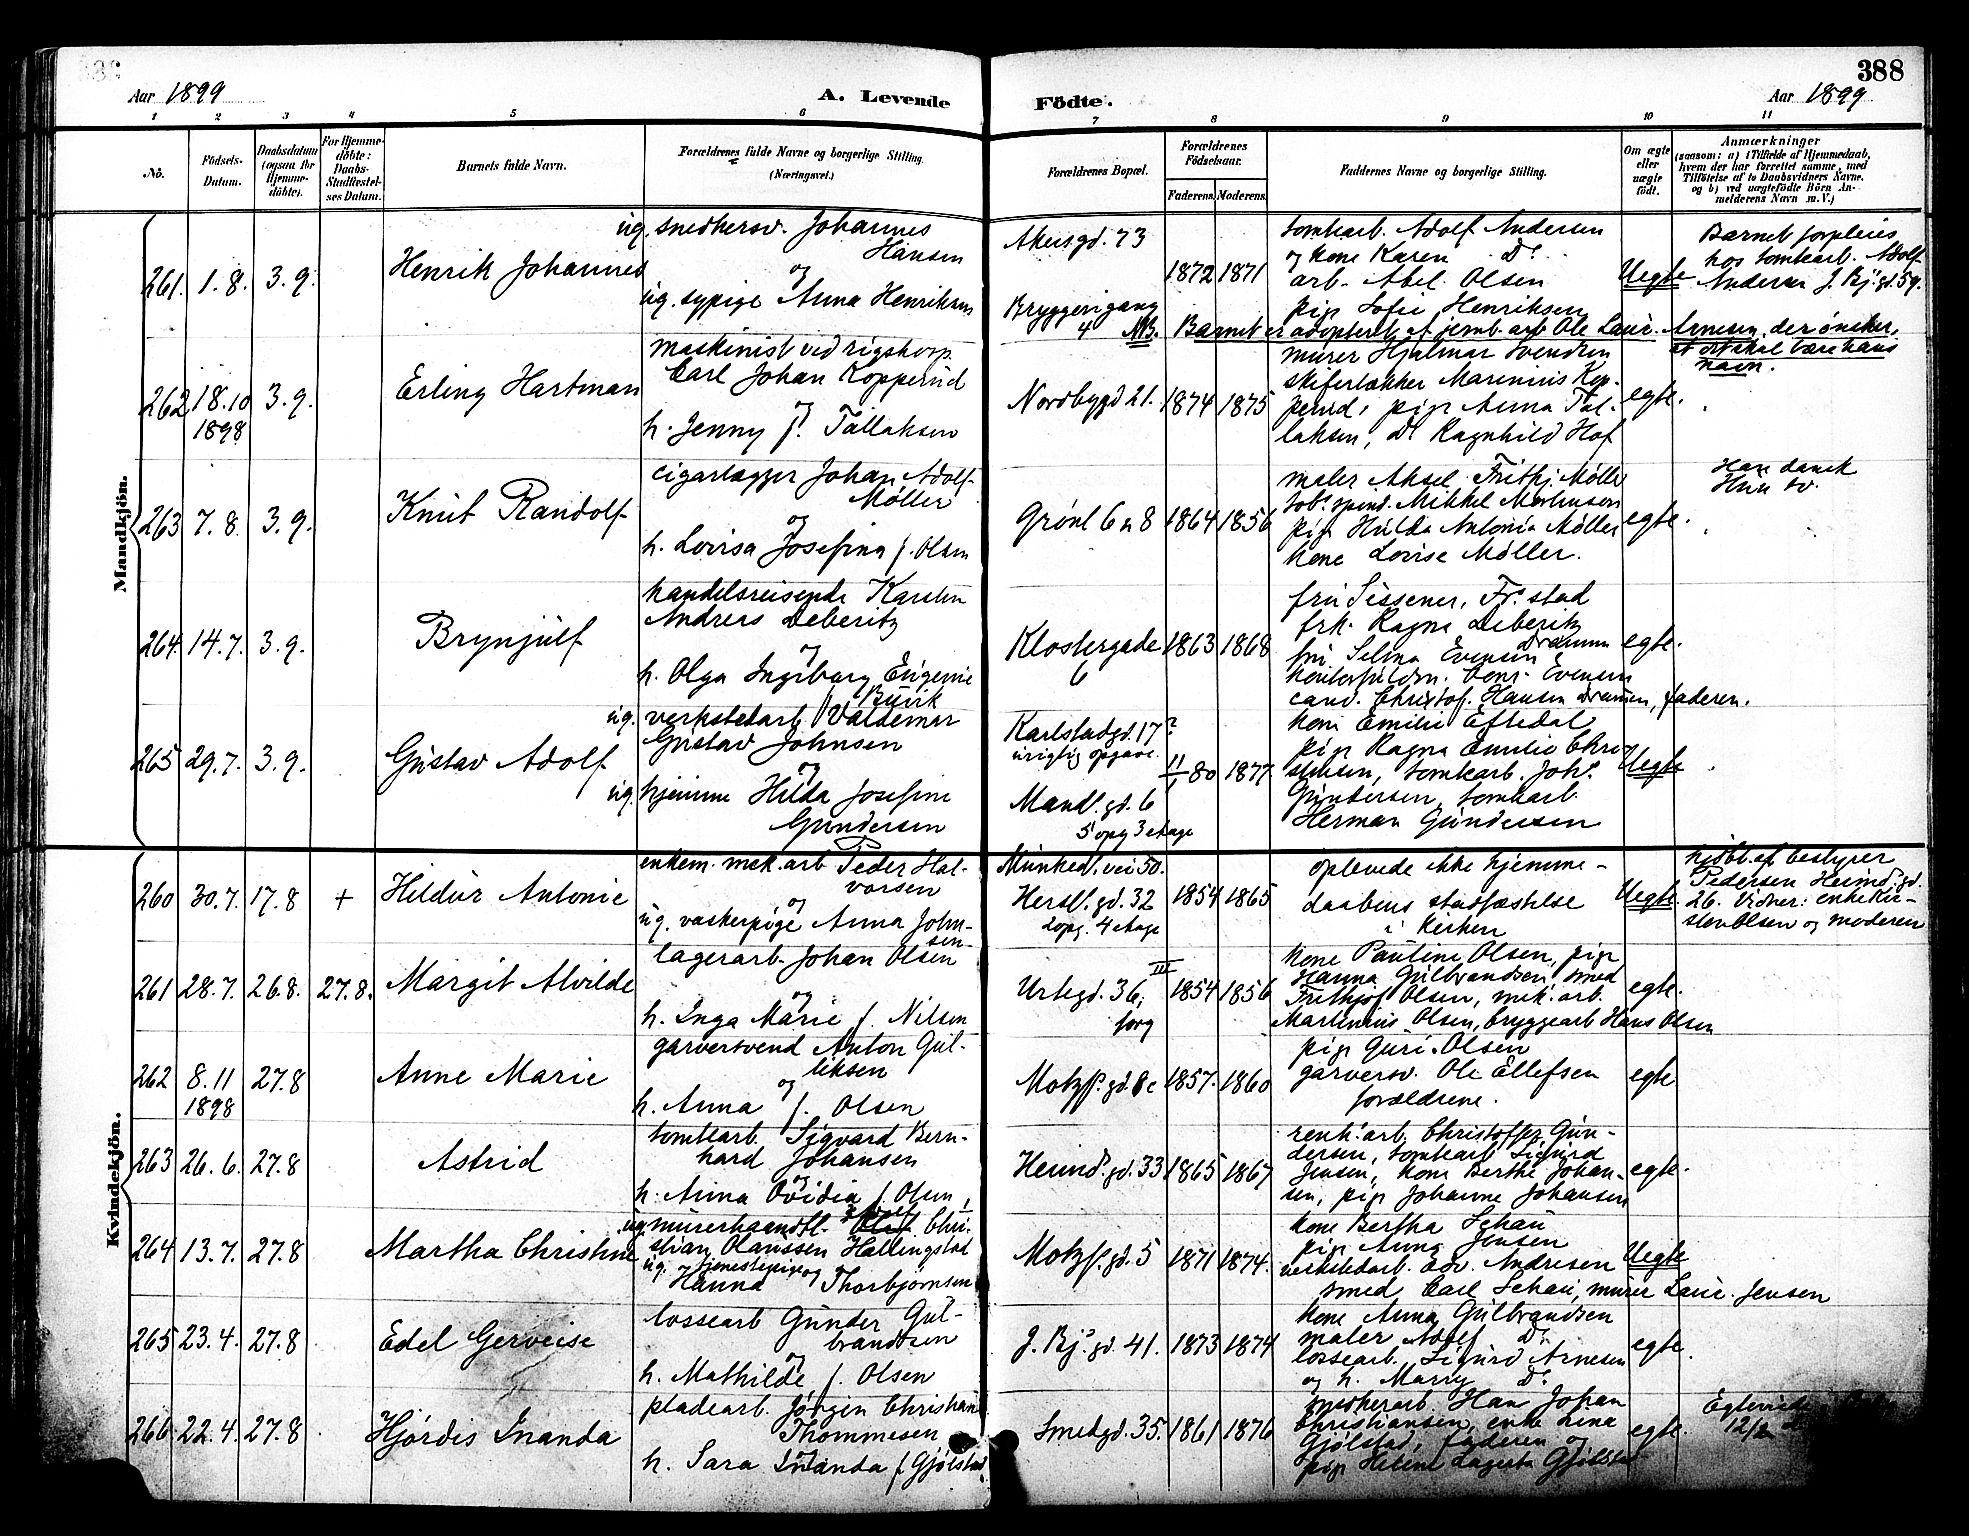 388
Aar 1899
A. Levende Födte.
Aar 1899
1 2 3 4 5 6 7 8 9 10 11
No.
Födsels-
Datum.
Daabsdatum
(ogsaa for
Hjemme-
döbte).
For Hjemme-
döbte:
Daabs-
Stadfæstel-
ses Datum.
Barnets fulde Navn.
Forældrenes fulde Navne og borgerlige Stilling.
(Næringsvei.)
Forældrenes Bopæl.
Forældrenes
Födselsaar.
Faderens. Moderens.
Faddernes Navne og borgerlige Stilling.
Om ægte
eller
uægte
födt.
Anmærkninger
(saasom: a) i Tilfælde af Hjemmedaab,
hvem der har forrettet samme, med
Tilföielse af to Daabsvidners Navne,
og b) ved uægtefödte Börn An-
melderens Navn m. V.)
Mandkjön.
261. 1.8. 3.9.
Henrik Johannes
ug. snedkersv. Johannes
Hansen
og
ug. sypige Anna Henriksen
Akersgd. 73
Bryggerigang
4
1872 1871
tomtearb. Adolf Andersen
og kone Karen Do
arb. Abel Olsen
pige Sofie Henriksen
Uegte
Barnet forpleies
hos tomtearb. Adolf
Andersen J. Bj. gd. 59.
NB. Barnet er adopteret af jernb. arb Ole Laur. Arnesen, der ønsker,
at det skal bære hans
navn.
262 18.10 3.9.
1898
Erling Hartman
maskinist ved rigshosp.
Carl Johan Kopperud
og
h. Jenny f. Tallaksen
Nordbygd 21.
1874 1875
murer Hjalmar Svendsen
skifertækker Marinius Kop-
perud, pige Anna Tal-
laksen, Do Ragnhild Hof
egte.
263 7.8. 3.9.
Knut Randolf
cigarlægger Johan Adolf
Møller
og
h. Lovisa Josefina f. Olsen
Grønl 6 a 8
1864 1856
maler Aksel Frithj. Møller
tob. spind. Mikkel Mortensen
pige Hulda Antonia Møller
kone Lovise Møller.
egte.
Han dansk
Hun sv.
264. 14.7. 3.9.
Brynjulf
handelsreisende Karsten
Andreas Deberitz
og
h. Olga Ingeborg Eugenie
f. Buvik
Klostergade
6
1863 1868
fru Sissener, Fr.stad
frk. Ragna Deberitz
Drammen
fru Selma Evensen
cand. Christof. Hansen Drammen, faderen.
egte.
265 29.7. 3.9.
Gustav Adolf
ug. verkstedarb Valdemar
Gustav Johnsen
og
ug. hjemme Hilda Josefine
Gundersen
Karlstadgd. 17?
urigtig opgave.
Mandl. gd. 6
5 opg 3 etage
11/1 80 1877
kone Emilie Eftedal
pige Ragna Emilie Chri-
stensen, tomtearb. Johs.
Gundersen, tomtearb.
Herman Gundersen
Uegte
Kvindekjön.
260 30.7. 17.8 +
Hildur Antonie
enkem. mek. arb Peder Hal-
vorsen
og
ug. vaskerpige Anna John-
sen
Munked. vei 50.
Hersl. gd. 32
2 opg. 4 etage
1854 1865
oplevede ikke hjemme-
daabens stadfæstelse
i kirken
Uegte
hjdbt. af bestyrer
Pedersen Heimd. gd.
26. Vidner: enke Kir-
sten Olsen og moderen
261 28.7. 26.8. 27.8.
Margit Alvilde
lagerarb. Johan Olsen
og
h. Inga Marie f. Nilsen
Urtegd. 36, III
1854 1856
kone Pauline Olsen, pige
Hanna Gulbrandsen, smed
Frithjof Olsen, mek. arb.
Martinius Olsen, bryggearb Hans Olsen
egte.
262 8.11 27.8
1898
Anne Marie
garversvend Anton Gul-
liksen
og
h. Anna f. Olsen
Motzf. gd. 8 c
1857. 1860
pige Guri Olsen
garversv. Ole Ellefsen
forældrene.
egte
263 26.6. 27.8
Astrid
tomtearb. Sigvard Bern-
hard Johansen
og
h. Anna Ovidia f. Olsen
Heimd. gd. 33
1865 1867
renh. arb. Christoffer Gun-
dersen, tomtearb Sigurd
Jensen, kone Berthe Johan-
sen, pige Johanne Johansen
egte.
264 13.7. 27.8
Martha Christine
ug. murerhaandtl. Chri-
stian Olaussen Hallingstad
ug. tjenestepige og
Hanna Thorbjørnsen
Motzf. gd. 5
1871 1874.
kone Bertha Schau
pige Anna Jensen
verkstedarb. Edv. Andresen
smed Carl Schau, murer Laur. Jensen
Uegte
265 23.4. 27.8
Edel Gerveise
lossearb Gunder Gul-
brandsen
og
h. Mathilde f. Olsen
J. Bj. gd. 41.
1873 1874
kone Anna Gulbrandsen
maler Adolf Do
lossearb. Sigurd Arnesen
og h. Marry Do
egte.
266 22.4. 27.8
Hjørdis Inanda
pladearb. Jørgen Christian
Thommesen
og
h. Sara Inanda f. Gjølstad
Smedgd. 35.
1861 1876
snedkerarb. Hans Johan
Christiansen, enke Lina
Gjølstad, faderen og
pige Helene Lagerta Gjølstad
egte.
12/2